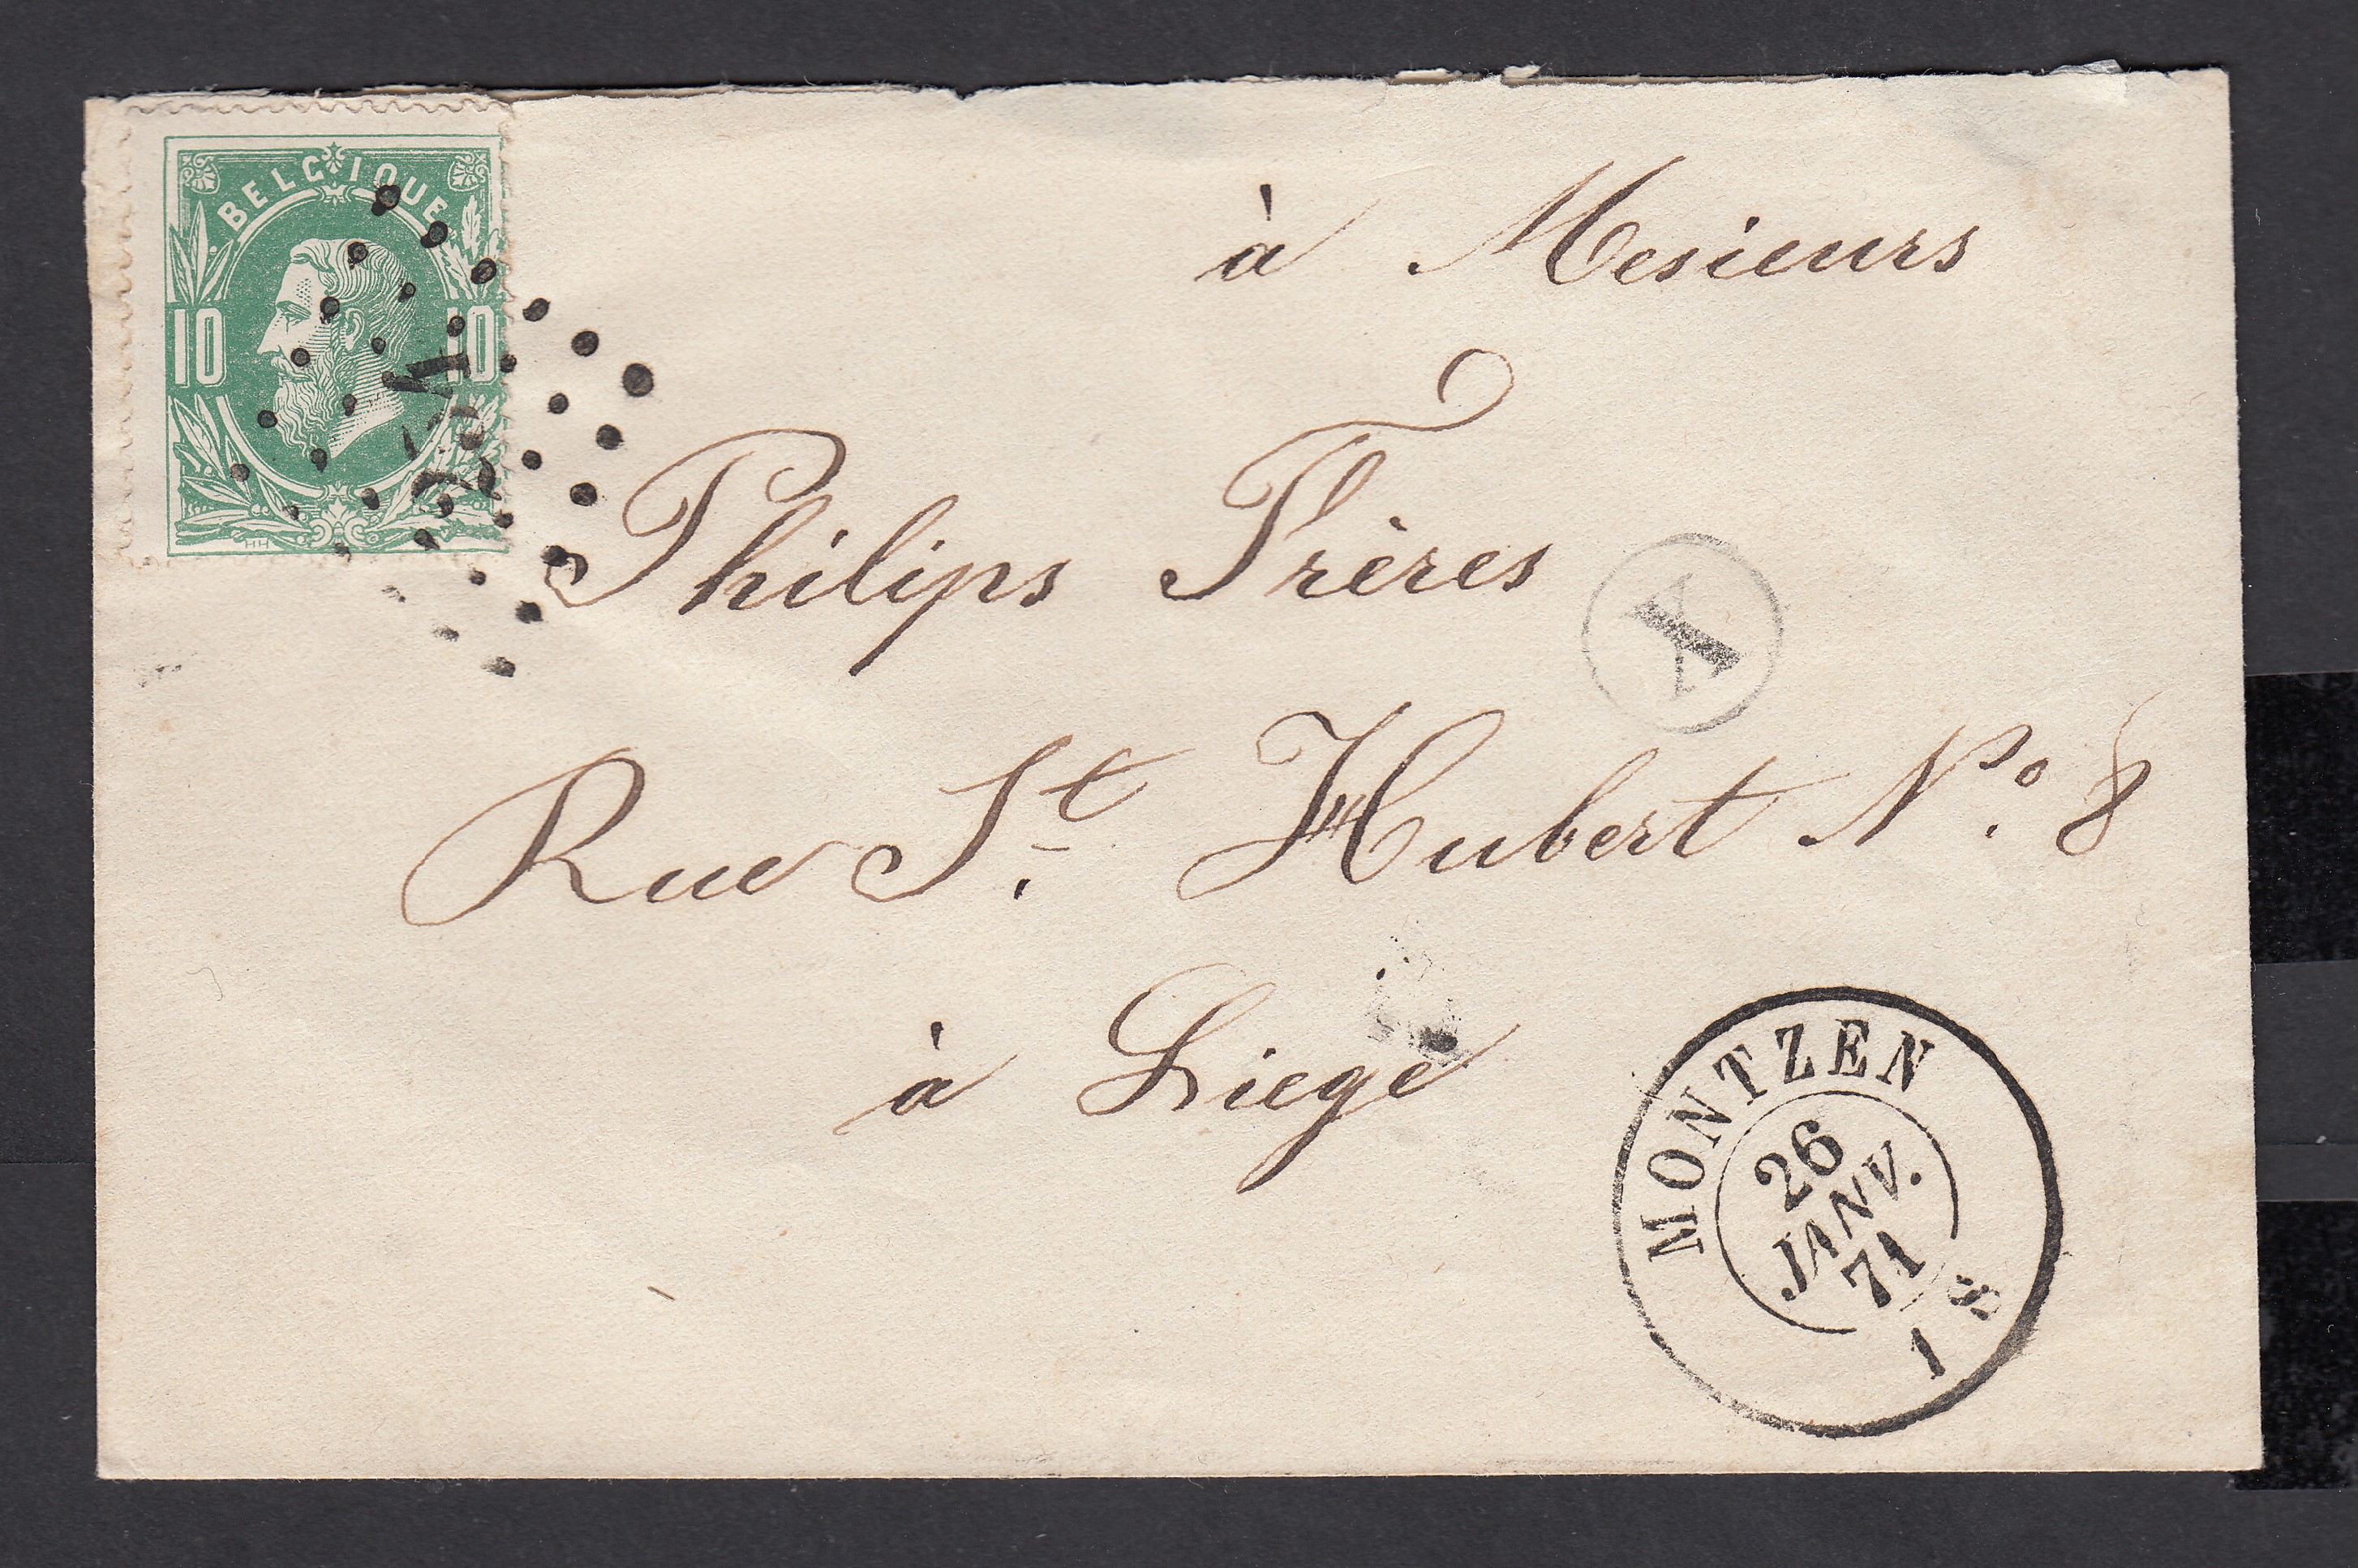 BELGIQUE
10 10
HH
à Mesieurs
Philips Frères
X
Rue St. Hubert No. 8
à Liege
MONTZEN
26
JANV.
71
1 S